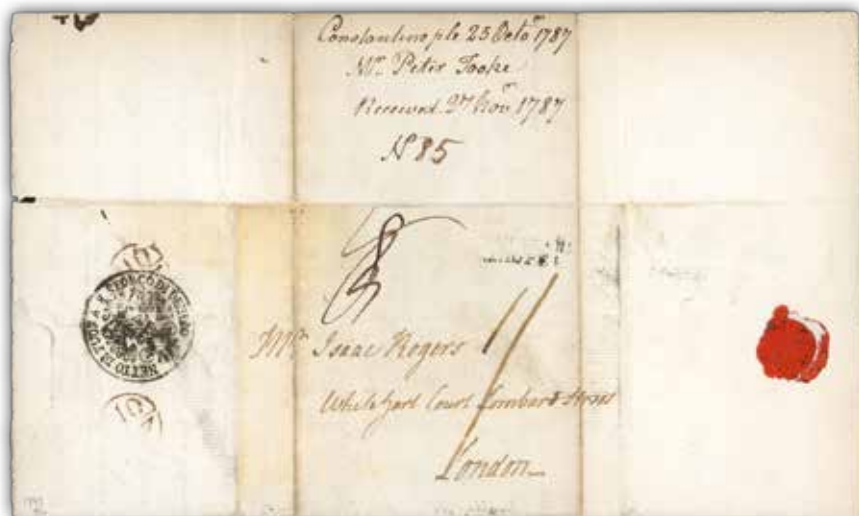 Constantinople 25 Octo.r 1787
Mr. Peter Tooke
Received 27 Nov.r 1787
No 85
Mr. Isaac Rogers
White Hart Court Lombard Street
London
NETTO DI FUORI